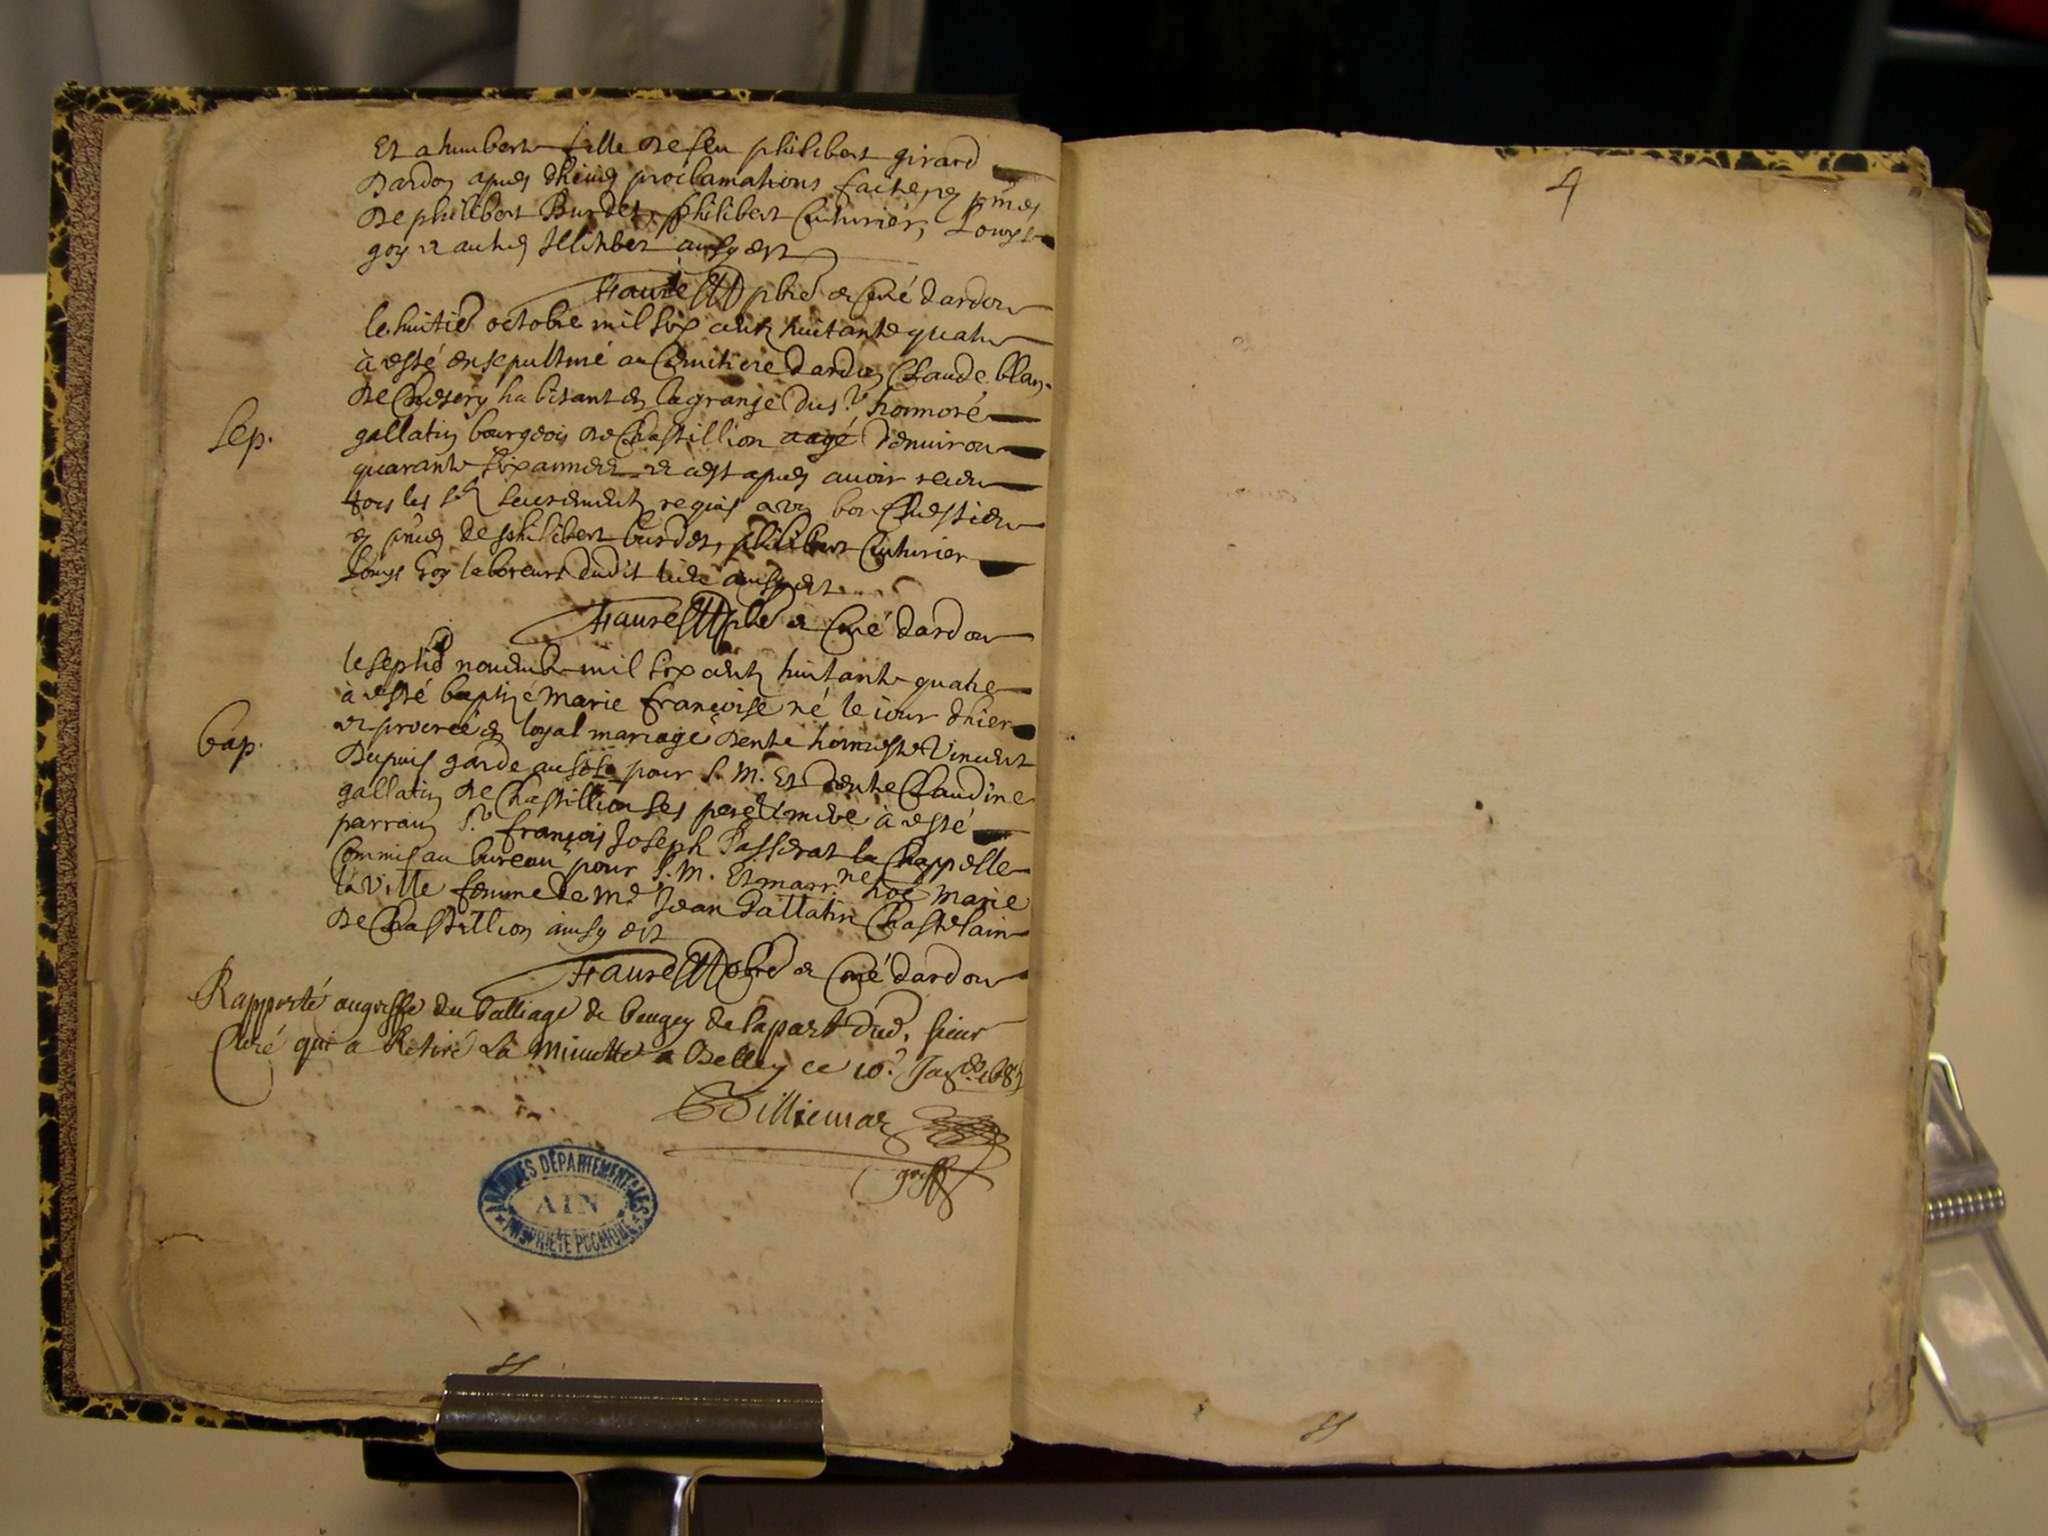 Et a humberte fille de feu philibert girard
dardon apres deues proclamations faites en pnces
de philibert Burdet, philibert Cuturier, Louys
goy et autres ainsy est
Faure pbre et Curé dardon
le huitie octobre mil six cents huitante quatre
à esté ensepulturé au Cemitiere dardon Claude blanc
de Chesery habitant en la grange du sr honnoré
Sep.
gallatin bourgeois de Chastillion aagé denuiron
quarante six annees et cest apres auoir receu
tous les sts sacrements requis a vn bon Chrestien
en pnces de philibert burdet, philibert Cuturier
Louys Goy laboreurs dudit lieu ainsy est
Faure pbre et Curé dardon
le septie nouembre mil six cents huitante quatre
à esté baptizé marie françoise né le iour dhier
bap.
et procreé en loyal mariage dentre honneste Vincent
Dupuis garde au pour S. M. Et dentre Claudine
gallatin de Chastillion ses pere et mere à esté
parrain Sr françois Joseph Passerat la Chappelle
Commis au bureau pour S. M. Et marr.ne hoe marie
la Ville femme de me Jean Gallatin Chastelain
de Chastillion ainsy est
Faure pbre et Curé dardon
Rapporté au greffe du balliage de beugey de la part dud. sieur
Curé qui a Retiré La minutte a Belley ce 10e Jan
greff
ARCHIVES DÉPARTEMENTALES
AIN
PROPRIÉTÉ PUBLIQUE
4